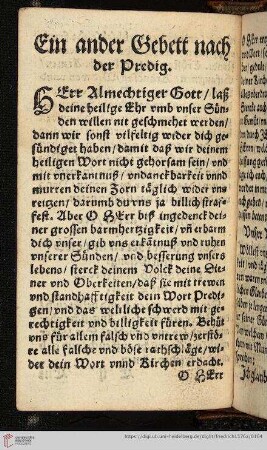 Ein ander Gebett nach
der Predig.
HErr Almechtiger Gott / laß
deine heilige Ehr vmb vnser Sün-
den willen nit geschmehet werden /
dann wir sonst vilfeltig wider dich ge-
sündiget haben / damit daß wir deinem
heiligen Wort nicht gehorsam sein / vnd
mit vnerkantnuß / vndanckbarkeit vnnd
murren deinen Zorn täglich wider vns
reitzen / darumb du vns ja billich straf-
fest. Aber O HErr biß ingedenck dei-
ner grossen barmhertzigkeit / vñ erbarm
dich vnser / gib vns erkätnuß vnd ruhen
vnserer Sünden / vnd besserung vnsers
lebens / sterck deinem Volck deine Die-
ner vnd Oberkeiten / daß sie mit trewen
vnd standhafftigkeit dein Wort Predi-
gen / vnd das weltliche schwerd mit ge-
rechtigkeit vnd billigkeit füren. Behüt
vns für allem falsch vnd vntrew / zerstö-
re alle falsche vnd böse rathschläge / wi-
der dein Wort vnnd Kirchen erdacht.
O HErr